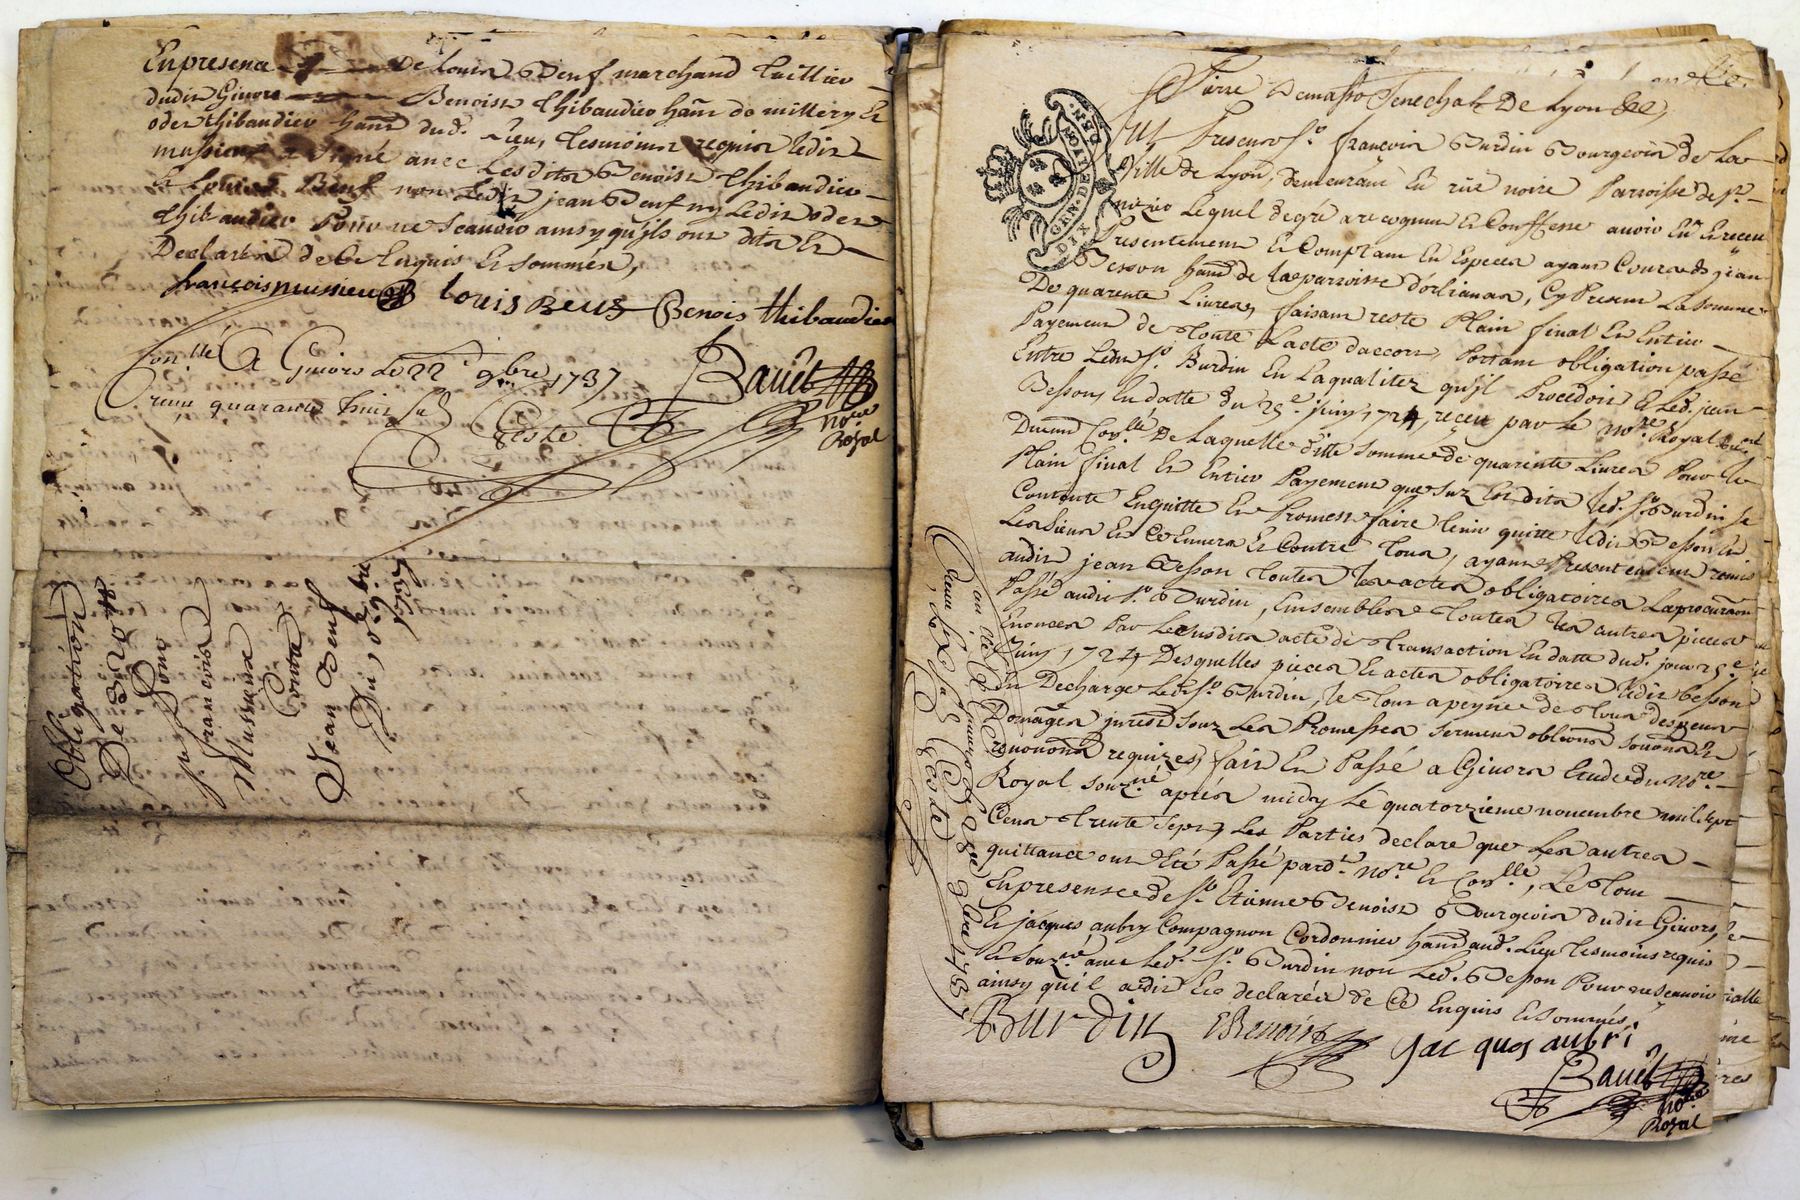 En presence De Louis Beuf marchand Tuillier
dudit Givors Benoist Thibaudier habt de millery Et
oder thibaudier habt dud. Lieu, Tesmoins requis Ledit
mussieux a signé avec Lesdits Benoist Thibaudier
& Louis Beuf non Ledit jean Beuf ny Ledit oder
Thibaudier Pour ne Scavoir ainsy qu'jls ont dits Et
Declaré de Ce Enquis Et sommés,
françois mussieu Louis Beuf Benois thibaudier
Con.lle A Givors Le 22 9bre 1737
Receu quarante huit s
Geste
Bauet
No.re
Royal
Obligation
De 320 ₶
p.r Sieur
françois
Mussieux
Contre
Jean Beuf
Du 9bre
1737
Pierre Demasso Senechal De Lyon &c,
fut Present Sr. françois Burdin Bourgeois de La
Ville de Lyon, demeurant En rüe noire Parroisse de St.
nizier Lequel de gré a recognu Et Confesse avoir Eu Et receu
Presentement Et Comptant En Especes ayant Cours de jean
Besson habt de La parroisse d'orlienas, Cy Present La somme
De quarente Livres, faisant reste Plain final Et Entier
Payement de Toute Lacte d'accort, Portant obligation passé
Entre Ledit Sr. Burdin En La qualitez qu'jl Procedoit & Led. jean
Besson, En datte du 25e. juin 1724, receu par Le No.re Royal
Dument Con.llé De Laquelle ditte somme de quarente Livres Pour Le
Plain final Et Entier Payement que sus Est dits Led. Sr. Burdin se
Contente Enquitte Et Promest faire tenir quitte Ledit Besson Et
Les siens En Ce Envers Et Contre Tous, ayant Presentement remis
audit jean Besson Toutes Les actes obligatoires La procuraon
Passé audit Sr. Burdin, Ensembles Toutes Les autres pieces
Enoncés Par Le susdits acte de Transaction En datte dud. jour 25e
Juin 1724 Desquelles pieces Et actes obligatoires Ledit besson
En Decharge Led. Sr. Burdin, Le Tout a peyne de Tous despens
Domages jnterest sous Les Promesses serment oblions soumons Et
renonons requizes, fait Et Passé a Givors Etude du No.re
Royal souz.né aprés midy Le quatorzieme novembre mil sept
Cens Trente sept, Les Parties declare que Les autres
quittance ont Eté Passé pard.t No.re Et Con.llé, Le Tout
En presence de Sr. Etienne Benoist Bourgeois dudit Givors,
Et jacques aubry Compagnon Cordonnier habt aud. Lieu Tesmoins requis
Et souz.né avec Led. Sr. Burdin non Led. Besson Pour ne Scavoir
ainsy qu'il a dit Et declaré de Ce Enquis Et sommés,
Burdin E Benoist Jac ques aubri
Bauet
No.re
Royal
GEN. DE LION
DIX DEN.